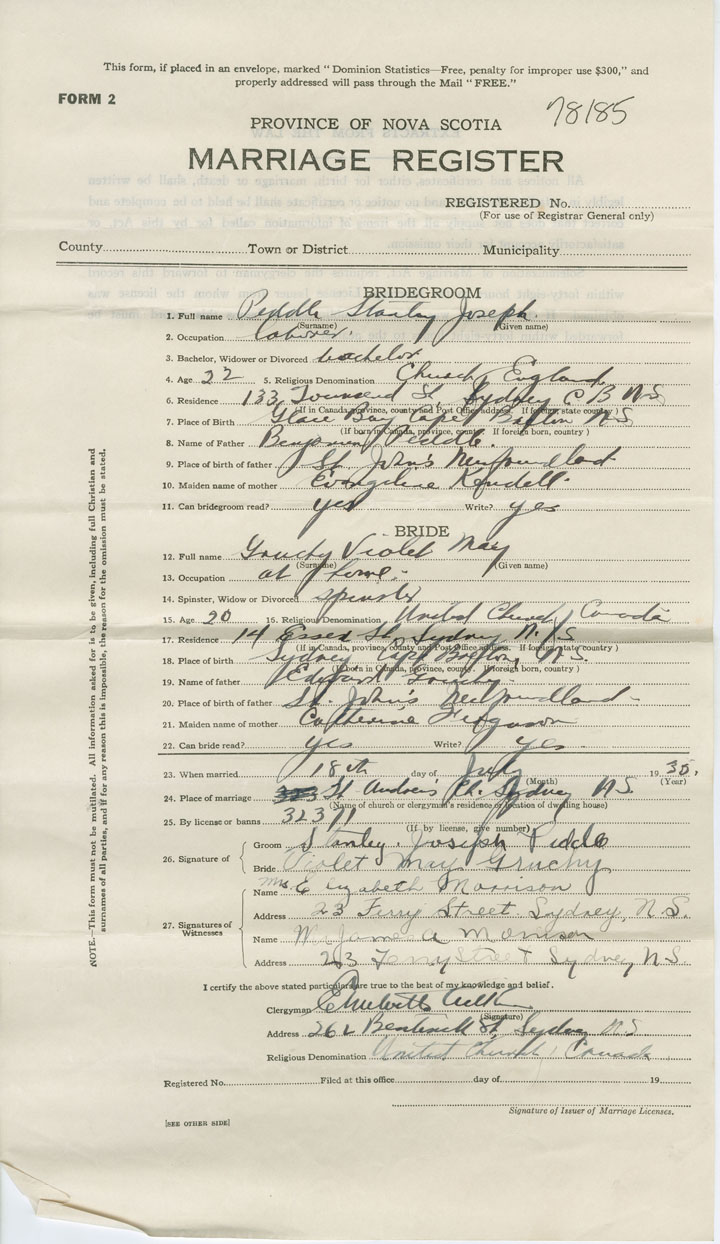 This form, if placed in an envelope, marked “ Dominion Statistics—Free, penalty for improper use $300,” and
properly addressed will pass through the Mail “ FREE.”
FORM 2
78185
PROVINCE OF NOVA SCOTIA
MARRIAGE REGISTER
REGISTERED No.
(For use of Registrar General only)
County Town or District Municipality
BRIDEGROOM
1. Full name Peddle Stanley Joseph.
(Surname) (Given name)
2. Occupation Laborer.
3. Bachelor, Widower or Divorced bachelor
4. Age 22 5. Religious Denomination Church / England
6. Residence 133 Townsend St. Sydney C B N.S.
(If in Canada, province, county and Post Office address. If foreign, state country )
7. Place of Birth Glace Bay Cape Breton N.S
(If born in Canada, province, county. If foreign born, country )
8. Name of Father Benjamin Peddle.
9. Place of birth of father St John's Newfoundland
10. Maiden name of mother Evangeline Kendell
11. Can bridegroom read? yes Write? yes
BRIDE
12. Full name Gruchy Violet May
(Surname) (Given name)
13. Occupation at home.
14. Spinster, Widow or Divorced spinster
15. Age 20 16. Religious Denomination United Church / Canada
17. Residence 14 Essex St. Sydney N.S
(If in Canada, province, county and Post Office address. If foreign, state country )
18. Place of birth Sydney Cape Breton, N.S.
(If born in Canada, province, county. If foreign born, country )
19. Name of father Edward Gruchy
20. Place of birth of father St. John's Newfoundland
21. Maiden name of mother Catherine Ferguson
22. Can bride read? yes Write? yes.
23. When married 18th day of July 1935.
(Month) (Year)
24. Place of marriage St Andrew's Ch. Sydney N.S.
(Name of church or clergyman's residence or location of dwelling house)
25. By license or banns 32371
(If by license, give number)
26. Signature of
Groom Stanley Joseph Peddle
Bride Violet May Gruchy
27. Signatures of Witnesses
Name Mrs. Elizabeth Morrison
Address 23 Ferry Street, Sydney, N.S.
Name James A Morrison
Address 23 Ferry Street Sydney N.S.
I certify the above stated particulars are true to the best of my knowledge and belief.
Clergyman
(Signature)
Address Bentinck St, Sydney N.S.
Religious Denomination United Church / Canada
Registered No. Filed at this office day of 19
Signature of Issuer of Marriage Licenses.
[SEE OTHER SIDE]
NOTE.—This form must not be mutilated. All information asked for is to be given, including full Christian and
surnames of all parties, and if for any reason this is impossible, the reason for the omission must be stated.